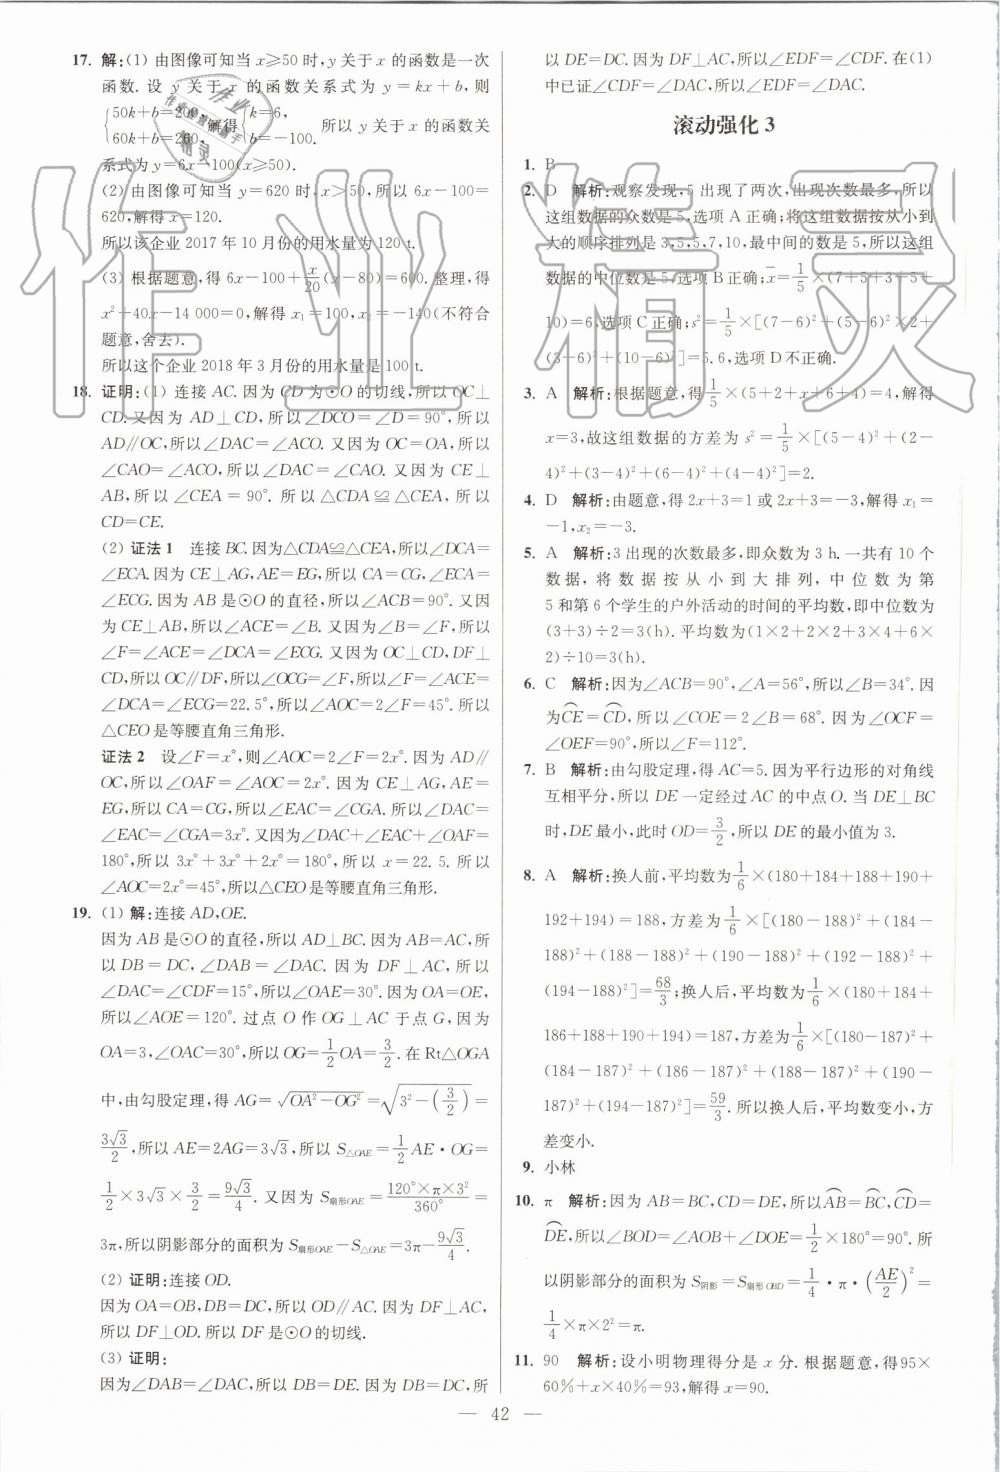 17. 解:(1) 由图像可知当 x≥50 时, y 关于 x 的函数是一次
函数. 设 y 关于 x 的函数关系式为 y=kx+b, 则
{50k+b=200, 60k+b=260, 解得{k=6, b=-100. 所以 y 关于 x 的函数关
系式为 y=6x-100(x≥50).
(2) 由图像可知当 y=620 时, x>50, 所以 6x-100=
620, 解得 x=120.
所以该企业 2017 年 10 月份的用水量为 120 t.
(3) 根据题意, 得 6x-100+x/20(x-80)=600. 整理, 得
x²+40x-14 000=0, 解得 x₁=100, x₂=-140(不符合
题意, 舍去).
所以这个企业 2018 年 3 月份的用水量是 100 t.
18. 证明:(1) 连接 AC. 因为 CD 为⊙O 的切线, 所以 OC⊥
CD. 又因为 AD⊥CD, 所以∠DCO=∠D=90°, 所以
AD∥OC, 所以∠DAC=∠ACO. 又因为 OC=OA, 所以
∠CAO=∠ACO, 所以∠DAC=∠CAO. 又因为 CE⊥
AB, 所以∠CEA=90°. 所以△CDA≌△CEA, 所以
CD=CE.
(2) 证法 1 连接 BC. 因为△CDA≌△CEA, 所以∠DCA=
∠ECA. 因为 CE⊥AG, AE=EG, 所以 CA=CG, ∠ECA=
∠ECG. 因为 AB 是⊙O 的直径, 所以∠ACB=90°. 又因
为 CE⊥AB, 所以∠ACE=∠B. 又因为∠B=∠F, 所以
∠F=∠ACE=∠DCA=∠ECG. 又因为 OC⊥CD, DF⊥
CD, 所以 OC∥DF, 所以∠OCG=∠F, 所以∠F=∠ACE=
∠DCA=∠ECG=22.5°, 所以∠AOC=2∠F=45°. 所以
△CEO 是等腰直角三角形.
证法 2 设∠F=x°, 则∠AOC=2∠F=2x°. 因为 AD∥
OC, 所以∠OAF=∠AOC=2x°. 因为 CE⊥AG, AE=
EG, 所以 CA=CG, 所以∠EAC=∠CGA. 所以∠DAC=
∠EAC=∠CGA=3x°. 又因为∠DAC+∠EAC+∠OAF=
180°, 所以 3x°+3x°+2x°=180°, 所以 x=22.5. 所以
∠AOC=2x°=45°, 所以△CEO 是等腰直角三角形.
19. (1) 解:连接 AD, OE.
因为 AB 是⊙O 的直径, 所以 AD⊥BC. 因为 AB=AC, 所
以 DB=DC, ∠DAB=∠DAC. 因为 DF⊥AC, 所以
∠DAC=∠CDF=15°, 所以∠OAE=30°. 因为 OA=OE,
所以∠AOE=120°. 过点 O 作 OG⊥AC 于点 G, 因为
OA=3, ∠OAC=30°, 所以 OG=1/2OA=3/2. 在 Rt△OGA
中, 由勾股定理, 得 AG=√(OA²-OG²)=√(3²-(3/2))=
3√3/2, 所以 AE=2AG=3√3, 所以 S△OAE=1/2AE·OG=
1/2×3√3×3/2=9√3/4. 又因为 S扇形OAE=120°×π×3²/360°=
3π, 所以阴影部分的面积为 S扇形OAE-S△OAE=3π-9√3/4.
(2) 证明:连接 OD.
因为 OA=OB, DB=DC, 所以 OD∥AC. 因为 DF⊥AC,
所以 DF⊥OD. 所以 DF 是⊙O 的切线.
(3) 证明:
因为∠DAB=∠DAC, 所以 DB=DE. 因为 DB=DC, 所
以 DE=DC. 因为 DF⊥AC, 所以∠EDF=∠CDF. 在(1)
中已证∠CDF=∠DAC, 所以∠EDF=∠DAC.
滚动强化 3
1. B
2. D 解析:观察发现, 5 出现了两次, 出现次数最多, 所以
这组数据的众数是 5, 选项 A 正确; 将这组数据按从小到
大的顺序排列是 3,5,5,7,10, 最中间的数是 5, 所以这组
数据的中位数是 5, 选项 B 正确; x̄=1/5×(7+5+3+5+
10)=6, 选项 C 正确; s²=1/5×[(7-6)²+(5-6)²×2+
(3-6)²+(10-6)²]=5.6, 选项 D 不正确.
3. A 解析:根据题意, 得 1/5×(5+2+x+6+4)=4, 解得
x=3, 故这组数据的方差为 s²=1/5×[(5-4)²+(2-
4)²+(3-4)²+(6-4)²+(4-4)²]=2.
4. D 解析:由题意, 得 2x+3=1 或 2x+3=-3, 解得 x₁=
-1, x₂=-3.
5. A 解析:3 出现的次数最多, 即众数为 3 h. 一共有 10 个
数据, 将数据按从小到大排列, 中位数为第
5 和第 6 个学生的户外活动的时间的平均数, 即中位数为
(3+3)÷2=3(h). 平均数为(1×2+2×2+3×4+6×
2)÷10=3(h).
6. C 解析:因为∠ACB=90°, ∠A=56°, 所以∠B=34°. 因
为⌒CE=⌒CD, 所以∠COE=2∠B=68°. 因为∠OCF=
∠OEF=90°, 所以∠F=112°.
7. B 解析:由勾股定理, 得 AC=5. 因为平行边形的对角线
互相平分, 所以 DE 一定经过 AC 的中点 O. 当 DE⊥BC
时, DE 最小, 此时 OD=3/2, 所以 DE 的最小值为 3.
8. A 解析:换人前, 平均数为1/6×(180+184+188+190+
192+194)=188, 方差为1/6×[(180-188)²+(184-
188)²+(188-188)²+(190-188)²+(192-188)²+
(194-188)²]=68/3; 换人后, 平均数为1/6×(180+184+
186+188+190+194)=187, 方差为1/6×[(180-187)²+
(184-187)²+(186-187)²+(188-187)²+(190-
187)²+(194-187)²]=59/3. 所以换人后, 平均数变小, 方
差变小.
9. 小林
10. π 解析:因为 AB=BC, CD=DE, 所以⌒AB=⌒BC, ⌒CD=
⌒DE, 所以∠BOD=∠AOB+∠DOE=1/2×180°=90°. 所
以阴影部分的面积为 S阴影=S扇形OBD=1/4·π·(AE/2)²=
1/4×π×2²=π.
11. 90 解析:设小明物理得分是 x 分. 根据题意, 得 95×
60%+x×40%=93, 解得 x=90.
— 42 —
作业精灵